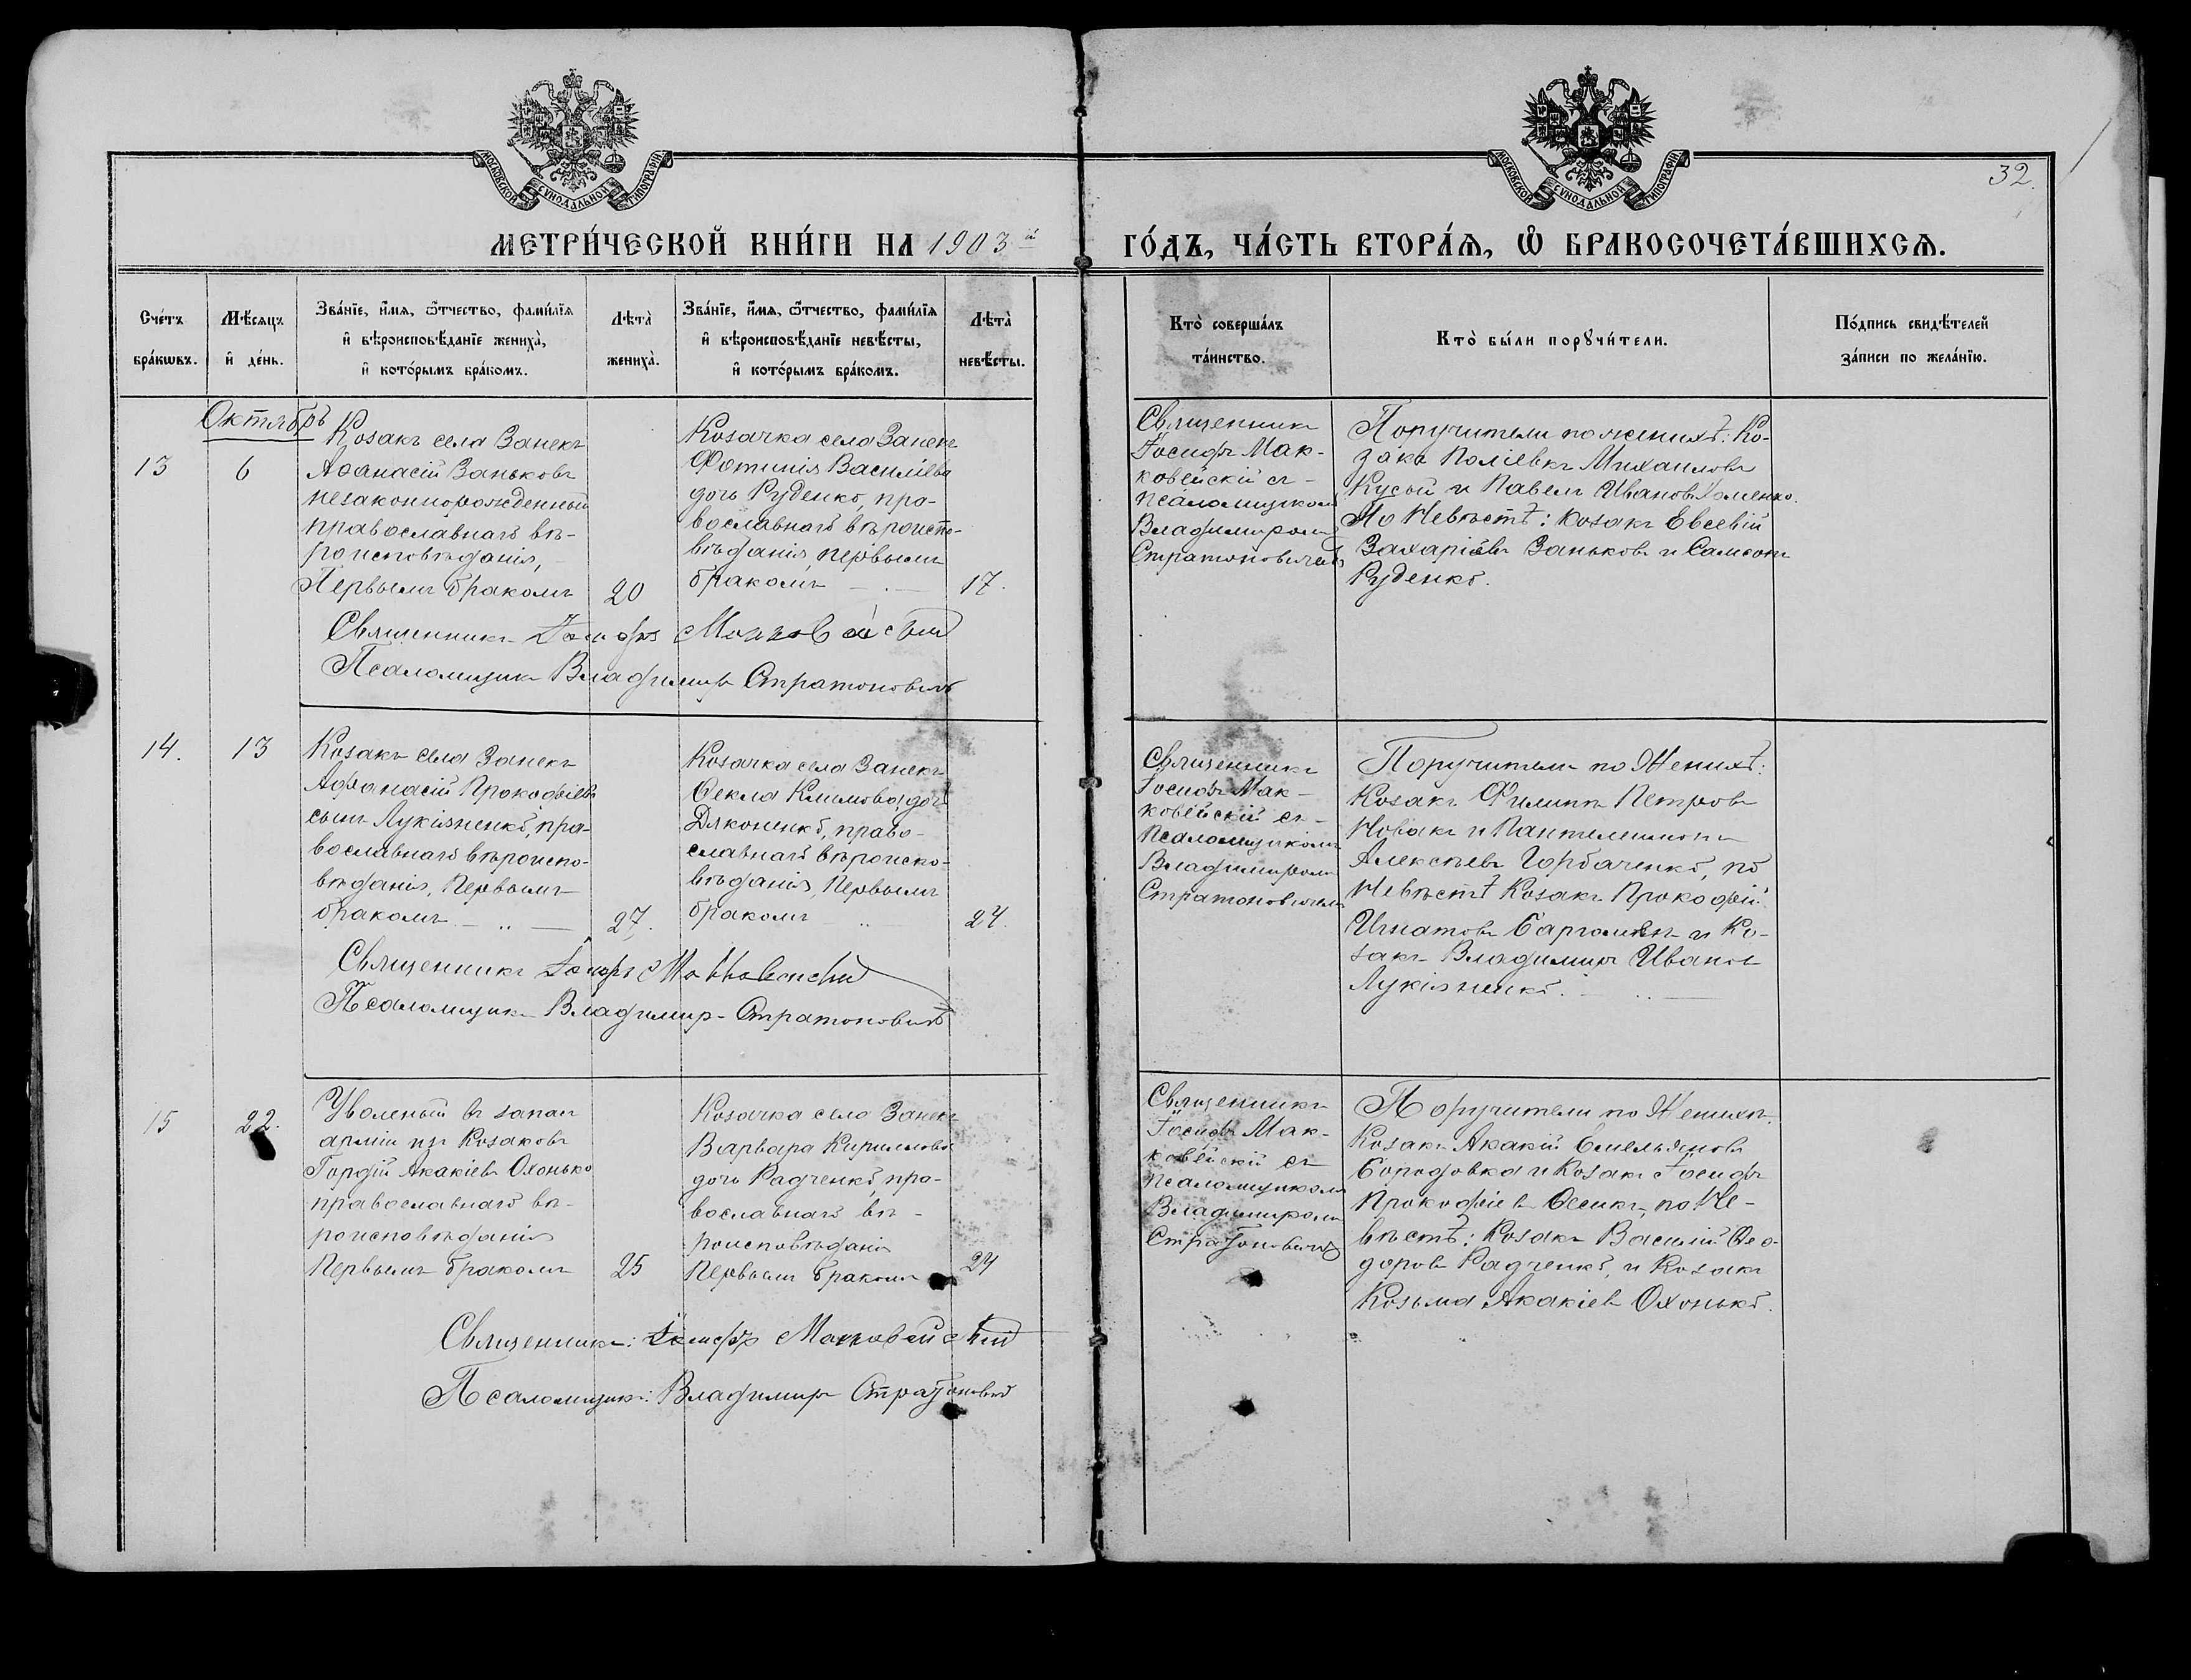 МОСКОВСКОЙ СѴНОДАЛЬНОЙ ТИПОГРАФІИ
МОСКОВСКОЙ СѴНОДАЛЬНОЙ ТИПОГРАФІИ
32.
МЕТРИ́ЧЕСКОЙ КНИ́ГИ НА 1903й ГО́ДЪ, ЧА́СТЬ ВТОРА́Ѧ, Ѡ҆ БРАКОСОЧЕТА́ВШИХСѦ.
Сче́тъ
бра́кѡвъ.
Мѣ́сяцъ
и҆ де́нь.
Зва́нїе, и҆́мѧ, ѻ҆́тчество, фами́лїѧ
и҆ вѣроисповѣ́данїе жениха̀,
и҆ кото́рымъ бра́комъ.
Лѣта̀
жениха̀.
Зва́нїе, и҆́мѧ, ѻ҆́тчество, фами́лїѧ
и҆ вѣроисповѣ́данїе невѣ́сты,
и҆ кото́рымъ бра́комъ.
Лѣта̀
невѣ́сты.
Кто̀ соверша́лъ
та́инство.
Кто̀ бы́ли порꙋчи́тели.
По́дпись свидѣ́телей
за́писи по жела́нїю.
Октябрь
13
6
Козакъ села Занекъ
Аѳанасій Заньковъ
незаконнорожденный
православнаго вѣ-
роисповѣданія, -
Первымъ бракомъ
20
Козачка села Занекъ
Фотинія Василіева
дочь Руденко, пра-
вославнаго вѣроиспо-
вѣданія, первымъ
бракомъ
17.
Священникъ
Іосифъ Мак-
ковейскій съ -
Псаломщикомъ
Владимиромъ
Стратоновичемъ
Поручители по женихѣ: Ко-
закъ Полievкъ Михаиловъ
Кусый и Павелъ Ивановъ Хоменко.
По Невѣстѣ: козакъ Евсевій
Захаріевъ Заньковъ и Самсонъ
Руденко.
Священникъ Іосифъ Макковейскій
Псаломщикъ Владимиръ Стратоновичъ
14.
13
Козакъ села Занекъ
Афанасій Прокофіевъ
сынъ Лукіяненко, пра-
вославнаго вѣроиспо-
вѣданія, Первымъ
бракомъ
27.
Козачка села Занекъ
Ѳекла Климова дочь
Дяконенко, право-
славнаго вѣроиспо-
вѣданія, Первымъ
бракомъ
24.
Священникъ
Іосифъ Мак-
ковейскій съ -
Псаломщикомъ
Владимиромъ
Стратоновичемъ
Поручители по Женихѣ:
Козакъ Филиппъ Петровъ
Новакъ и Пантелеимонъ
Алексѣевъ Горбаченко, по
Невѣстѣ Козакъ Прокофій
Игнатовъ и Ко-
закъ Владимиръ Ивановъ
Лукіяненко.
Священникъ Іосифъ Макковейскій
Псаломщикъ Владимиръ Стратоновичъ
15
22.
Уволеный въ запасъ
арміи изъ Козаковъ
Гордій Акакіевъ Охонько
православнаго вѣ-
роисповѣданія
Первымъ бракомъ
25
Козачка села Занекъ
Варвара Кириллова
дочь Радченко, пра-
вославнаго вѣ-
роисповѣданія
Первымъ бракомъ
24
Священникъ
Іосифъ Мак-
ковейскій съ
Псаломщикомъ
Владимиромъ
Стратоновичемъ
Поручители по Женихѣ:
Козакъ Акакій Емельяновъ
Бородовка и Козакъ Іосифъ
Прокофіевъ Ѳесикъ, по Не-
вѣстѣ: Козакъ Василій Ѳео-
доровъ Радченко, и Козакъ
Козьма Акакіевъ Охонько.
Священникъ: Іосифъ Макковейскій
Псаломщикъ: Владимиръ Стратоновичъ